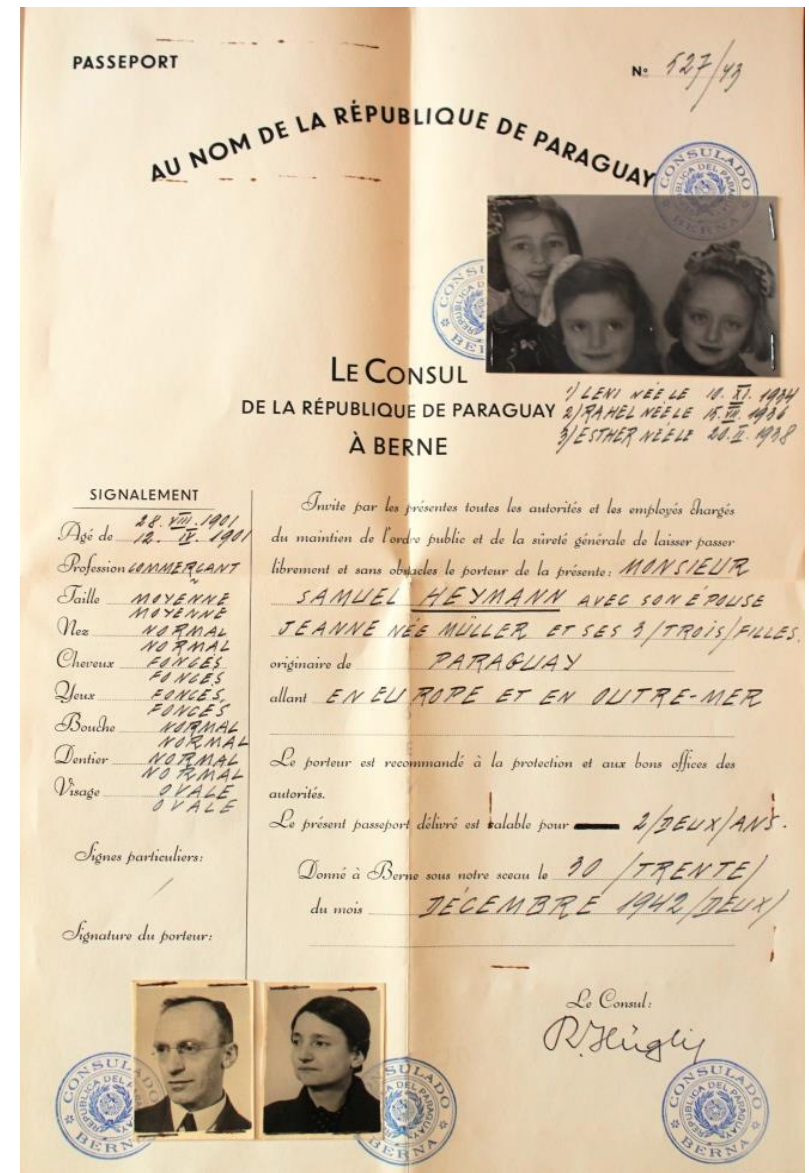 PASSEPORT
Nº 527/43
AU NOM DE LA RÉPUBLIQUE DE PARAGUAY
CONSULADO
REPÚBLICA DEL PARAGUAY
BERNA
LE CONSUL
DE LA RÉPUBLIQUE DE PARAGUAY
À BERNE
1) LENI NÉE LE 10. XI. 1934
2) RAHEL NÉE LE 15. VII. 1936
3) ESTHER NÉE LE 20. II. 1938
SIGNALEMENT
28. VIII. 1901
Agé de 12. IV. 1901
Profession COMMERÇANT
Taille MOYENNE
MOYENNE
Nez NORMAL
NORMAL
Cheveux FONCÉS
FONCÉS
Yeux FONCÉS,
FONCÉS
Bouche NORMAL
NORMAL
Dentier NORMAL
NORMAL
Visage OVALE
OVALE
Signes particuliers:
/
Signature du porteur:
Invite par les présentes toutes les autorités et les employés chargés
du maintien de l'ordre public et de la sûreté générale de laisser passer
librement et sans obstacles le porteur de la présente: MONSIEUR
SAMUEL HEYMANN AVEC SON ÉPOUSE
JEANNE NÉE MÜLLER ET SES 3/TROIS/FILLES.
originaire de PARAGUAY
allant EN EUROPE ET EN OUTRE-MER
Le porteur est recommandé à la protection et aux bons offices des
autorités.
Le présent passeport délivré est valable pour 2/DEUX/ANS.
Donné à Berne sous notre sceau le 30 /TRENTE/
du mois DÉCEMBRE 1942/DEUX/
Le Consul:
R. Hügli
CONSULADO
REPÚBLICA DEL PARAGUAY
BERNA
CONSULADO
BERNA
CONSULADO
REPÚBLICA DEL PARAGUAY
BERNA